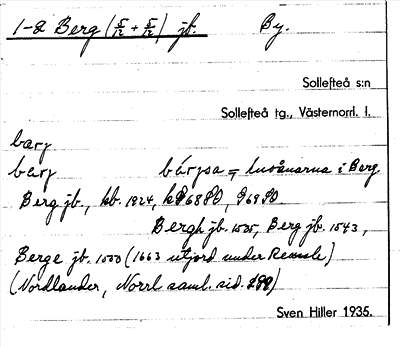 1-2 Berg (5/12 + 5/12) jb. By.
Sollefteå s:n
Sollefteå tg., Västernorrl. l.
barj
barj bárjsa = invånarna i Berg.
Berg jb., hb. 1824,
Bergh jb. 1535, Berg jb. 1543,
Berge jb. 1550 (1663 utjord under Remsle)
(Nordlander, Norrl. saml. sid. 290)
Sven Hiller 1935.